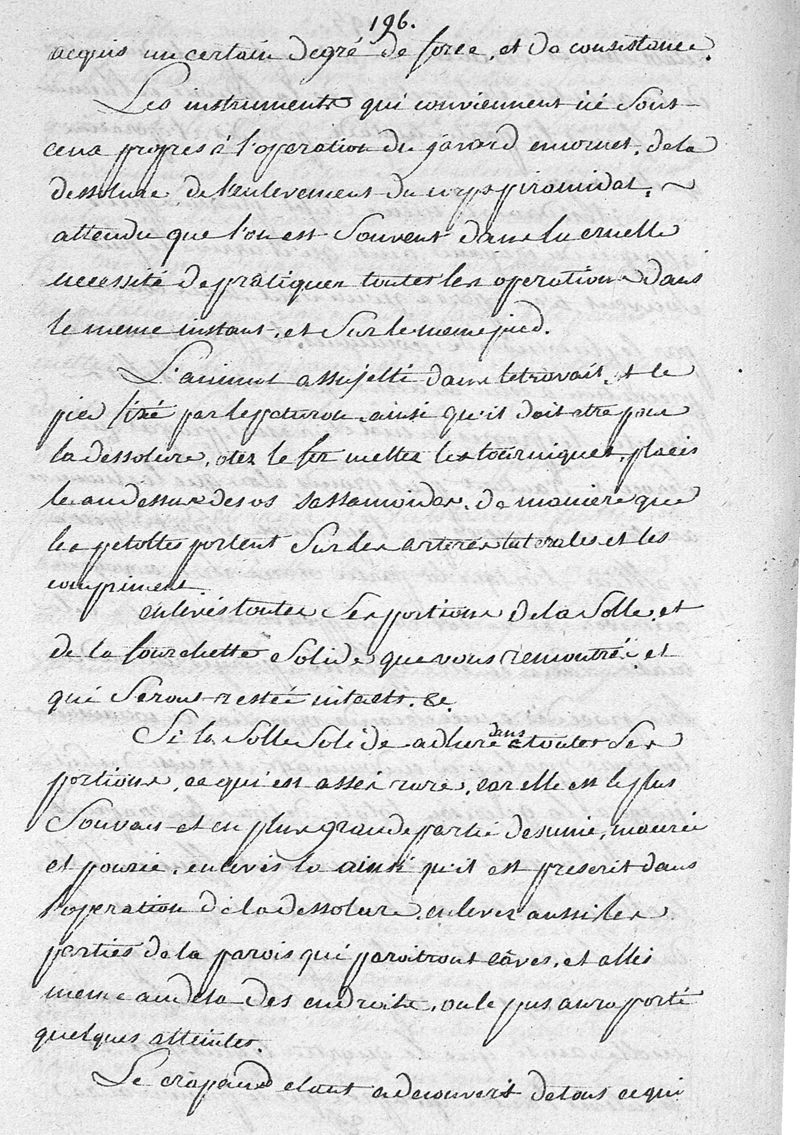 196.
acquis un certain degré de force, et de consistance.
Les instruments qui conviennent icé sont
ceux propres à l'operation du javard encorné, de la
dessolure de l'enlevement du corps piramidal. ~
attendu que l'on est souvent dans la cruelle
necessité de pratiquer toutes les operations dans
le meme instant, et sur le meme pied.
L'animal assujetti dans le travail, et le
pied fixé par le paturon, ainsi qu'il doit etre pour
la dessolure, otez le fer mettez les tourniquet, placés
le au dessus des os sassamoides, de maniere que
les pelottes portent sur les arteres laterales et les
compriment.
enlevés toutes ses portions de la solle, et
de la fourchette solide que vous remontré et
qui seront restée intacts. &c.
Si la solle solide adhere dans toutes ses
portions, ce qui est assez rare, car elle est le plus
souvant et en plus grande partie desunie,
et pourie, enlevés la ainsi qu'il est prescrit dans
l'operation de la dessolure, enlevez aussi les
parties de la parois qui paroitront caves, et allés
meme au dela des endroits, ou le pus aura porté
quelques atteintes.
Le crapaud etant a decouvert de tous ce qui